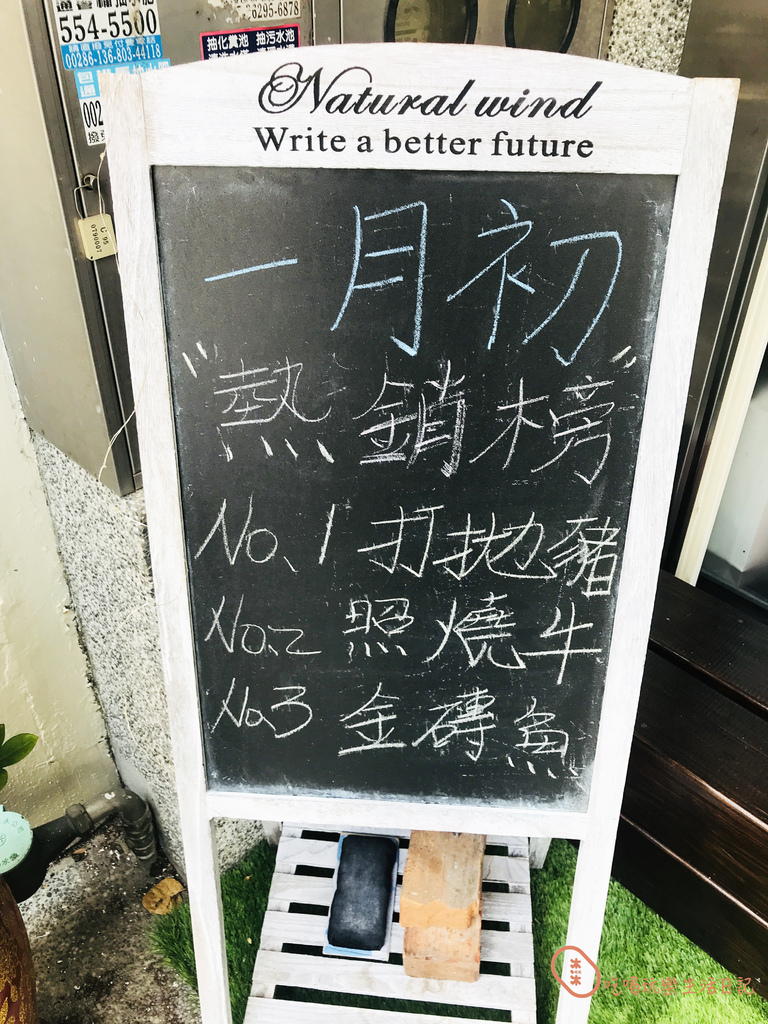 554-5500
00286-136-803-44118
6295-6878
抽化糞池 抽污水池
Natural wind
Write a better future
一月初
"熱銷榜"
No、1 打拋豬
No、2 照燒牛
No、3 金磚魚
吃喝玩樂生活日記